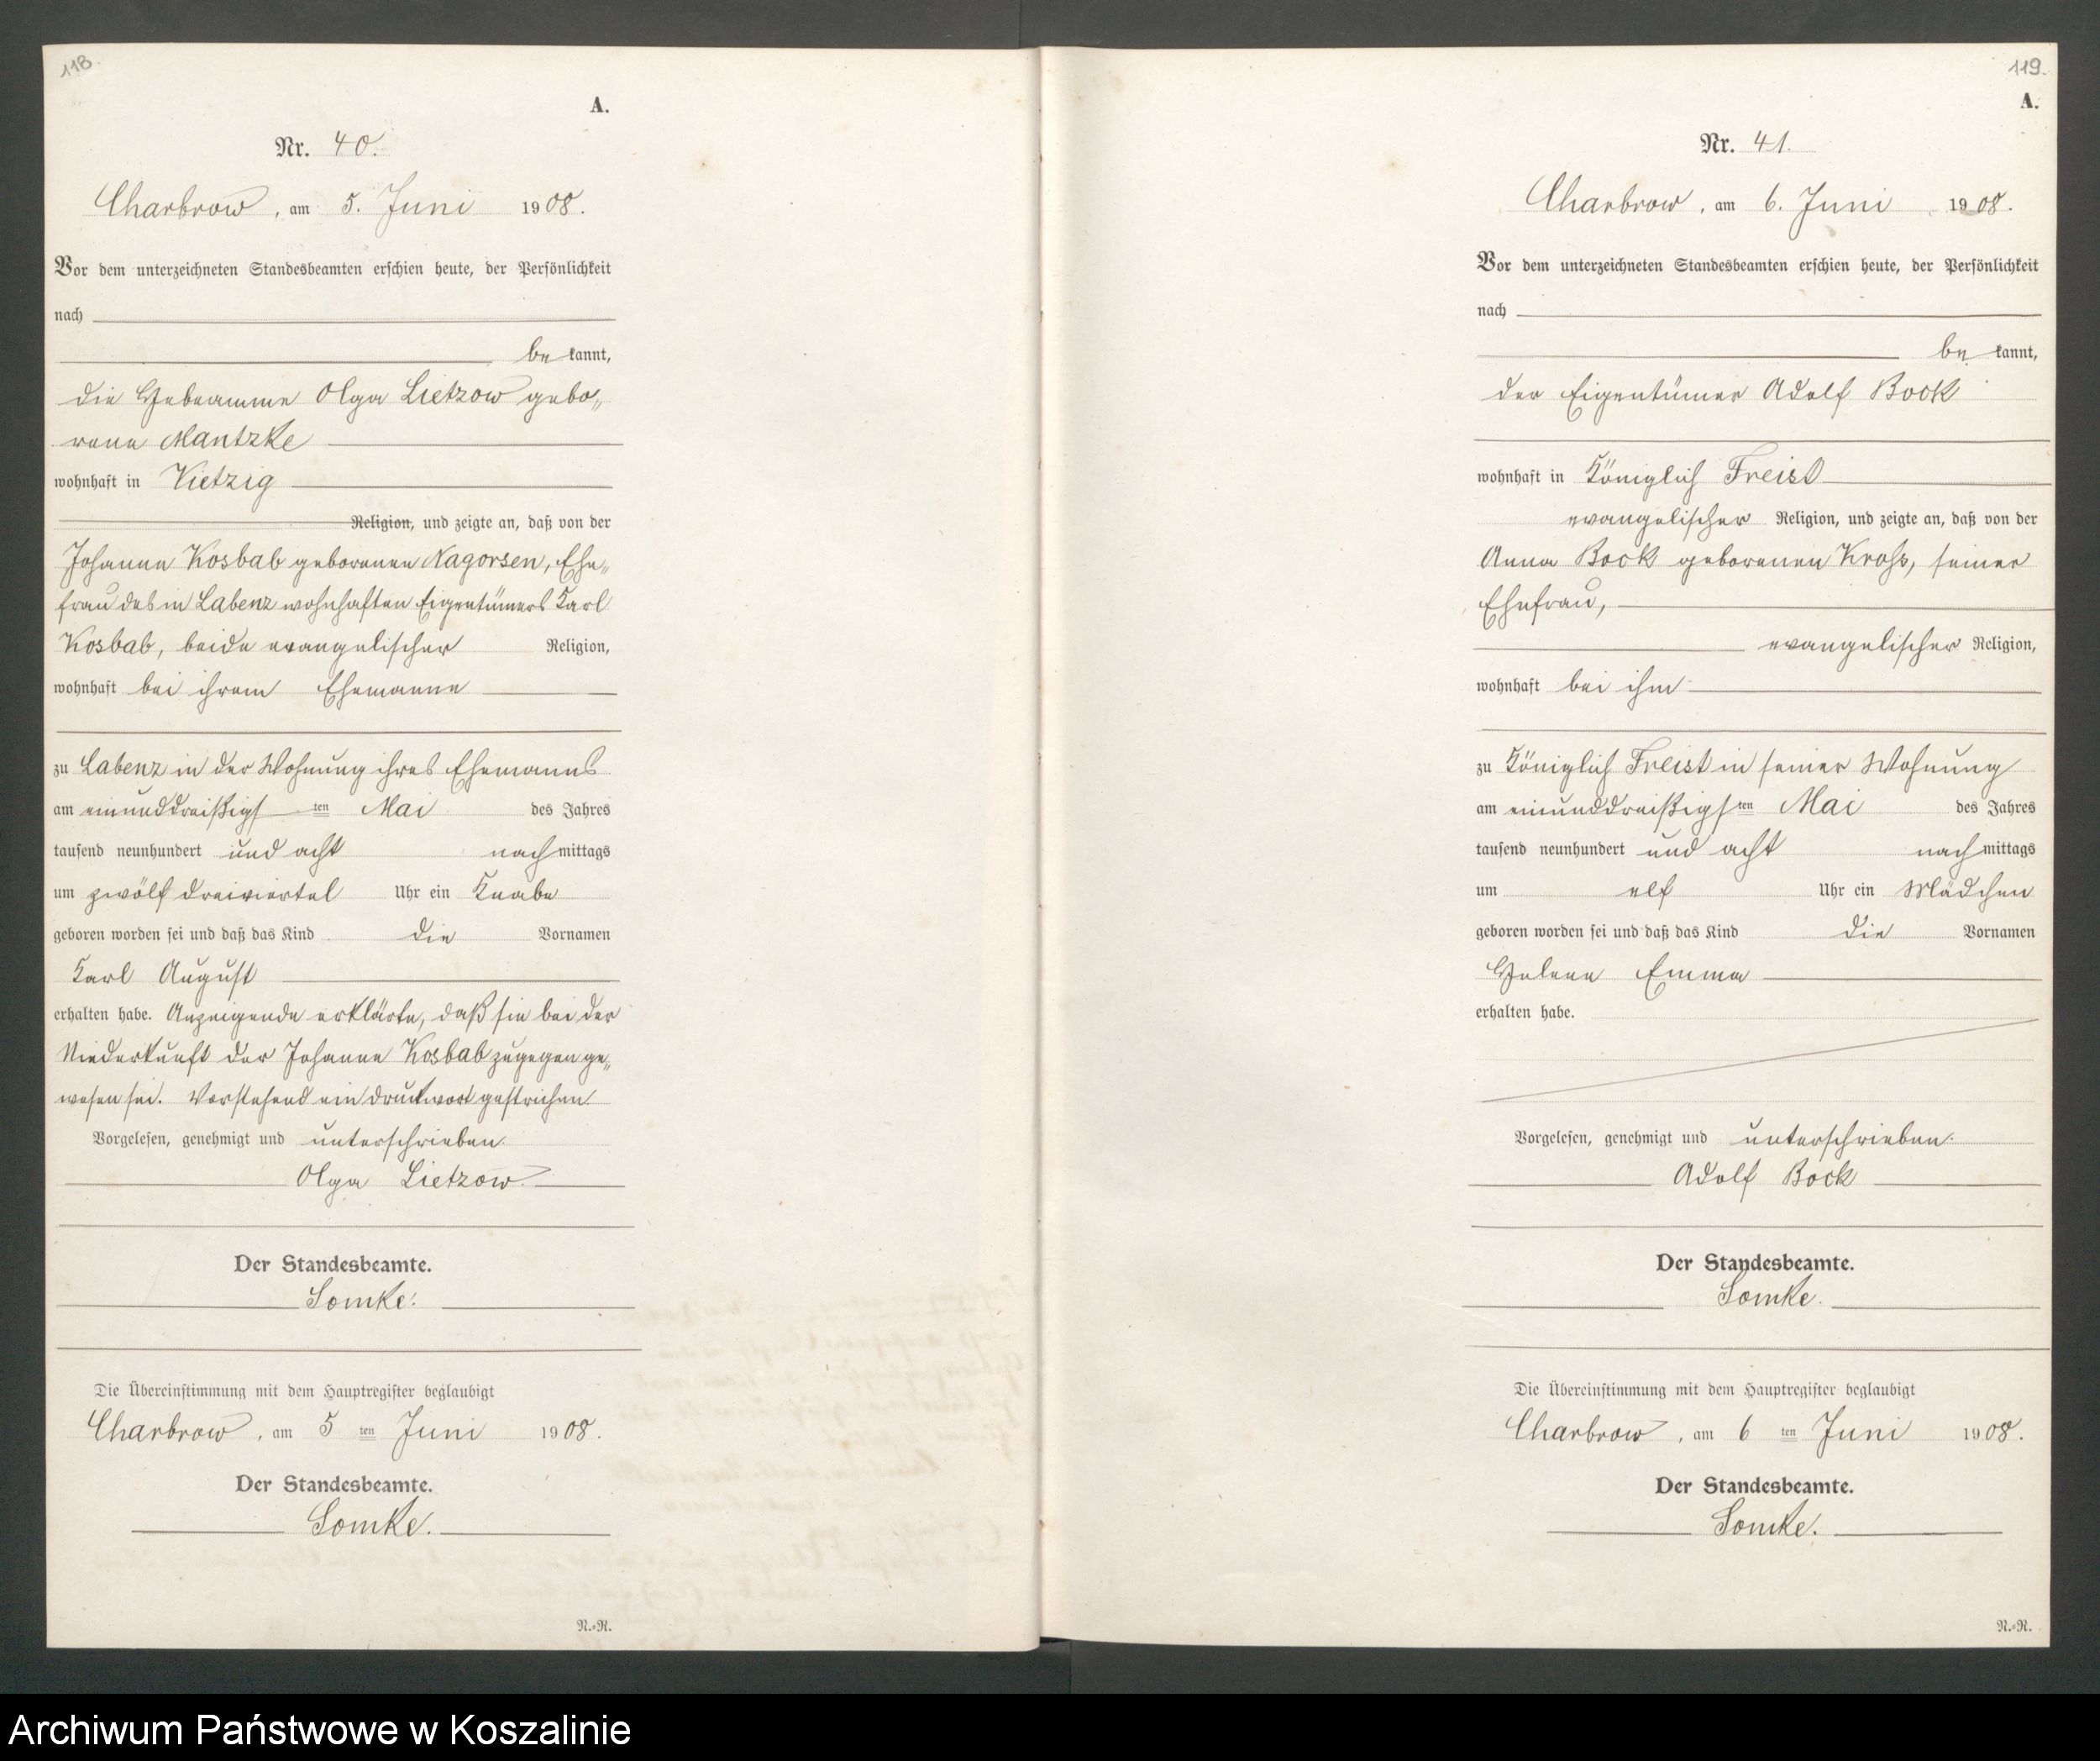 118.
A.
Nr. 40.
Charbrow, am 5. Juni 1908.
Vor dem unterzeichneten Standesbeamten erschien heute, der Persönlichkeit
nach
be kannt,
die Hebeamme Olga Lietzow gebo„
rene Mantzke
wohnhaft in Vietzig
Religion, und zeigte an, daß von der
Johanne Kosbab geborenen Nagorsen, Ehe„
frau des in Labenz wohnhaften Eigentümers Karl
Kosbab, beide evangelischer Religion,
wohnhaft bei ihrem Ehemanne
zu Labenz in der Wohnung ihres Ehemanns
am einunddreißigs ten Mai des Jahres
tausend neunhundert und acht nachmittags
um zwölf dreiviertel Uhr ein Knabe
geboren worden sei und daß das Kind die Vornamen
Karl August
erhalten habe. Anzeigende erklärte, daß sie bei der
Niederkunft der Johanne Kosbab zugegen ge„
wesen sei. Vorstehend ein Druckwort gestrichen.
Vorgelesen, genehmigt und unterschrieben.
Olga Lietzow.
Der Standesbeamte.
Somke.
Die Übereinstimmung mit dem Hauptregister beglaubigt
Charbrow, am 5 ten Juni 1908.
Der Standesbeamte.
Somke.
N.=R.
119.
A.
Nr. 41.
Charbrow, am 6. Juni 1908.
Vor dem unterzeichneten Standesbeamten erschien heute, der Persönlichkeit
nach
be kannt,
der Eigentümer Adolf Bock
wohnhaft in Königlich Freist
evangelischer Religion, und zeigte an, daß von der
Anna Bock geborenen Krohs, seiner
Ehefrau,
evangelischer Religion,
wohnhaft bei ihm
zu Königlich Freist in seiner Wohnung
am einunddreißigs ten Mai des Jahres
tausend neunhundert und acht nachmittags
um elf Uhr ein Mädchen
geboren worden sei und daß das Kind die Vornamen
Helene Emma
erhalten habe.
Vorgelesen, genehmigt und unterschrieben.
Adolf Bock
Der Standesbeamte.
Somke.
Die Übereinstimmung mit dem Hauptregister beglaubigt
Charbrow, am 6 ten Juni 1908.
Der Standesbeamte.
Somke.
N.=R.
Archiwum Państwowe w Koszalinie